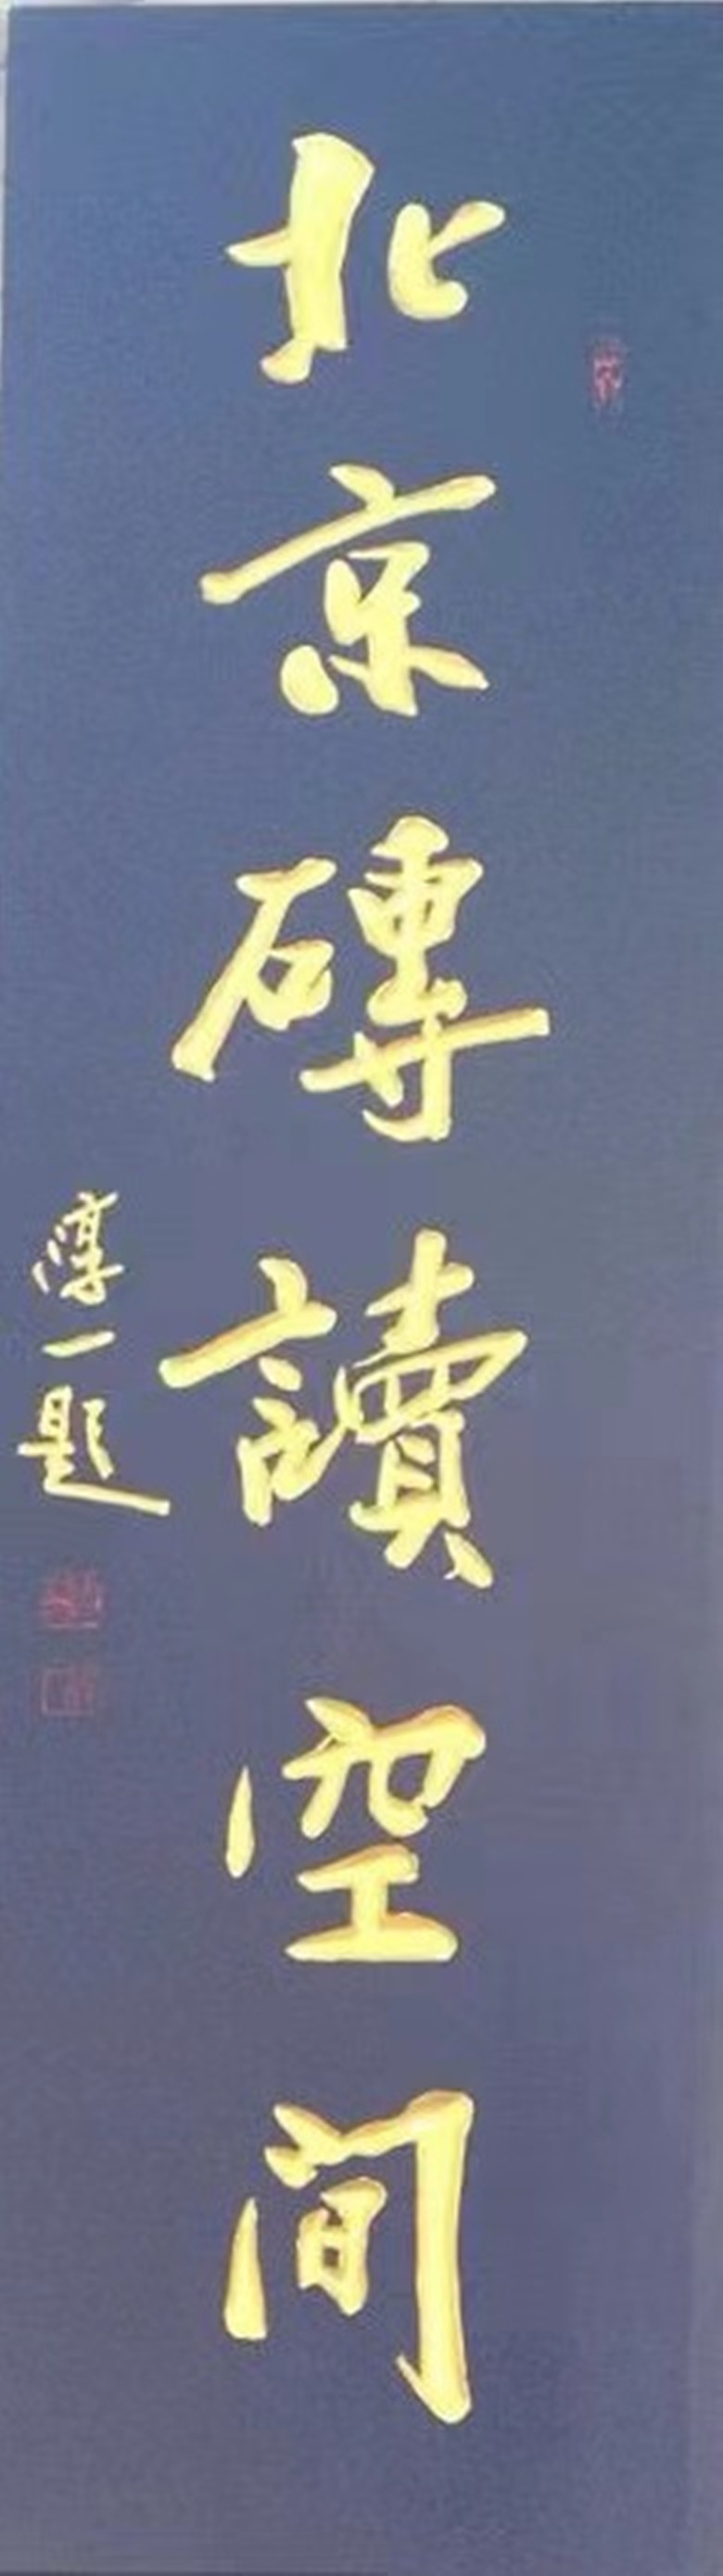 北京磚讀空间
淳一題